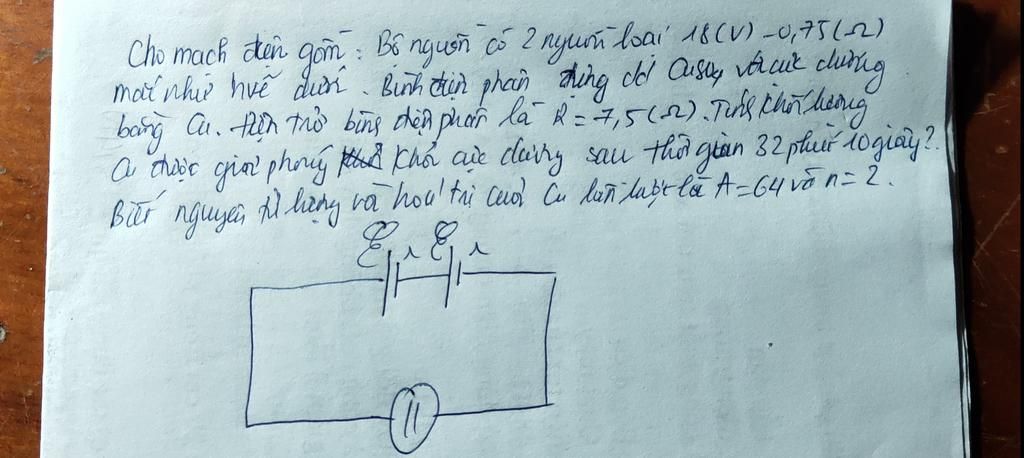 Cho mạch điện gồm: Bộ nguồn có 2 nguồn loại 18(V) - 0,75(Ω)
mắc như hvẽ dưới. Bình điện phân đựng dd CuSO4 với cực dương
bằng Cu. Điện trở bình điện phân là R = 7,5(Ω). Tính khối lượng
Cu được giải phóng khỏi cực dương sau thời gian 32 phút 10 giây?
Biết nguyên tử lượng và hoá trị của Cu lần lượt là A = 64 và n = 2.
ℰ r ℰ r